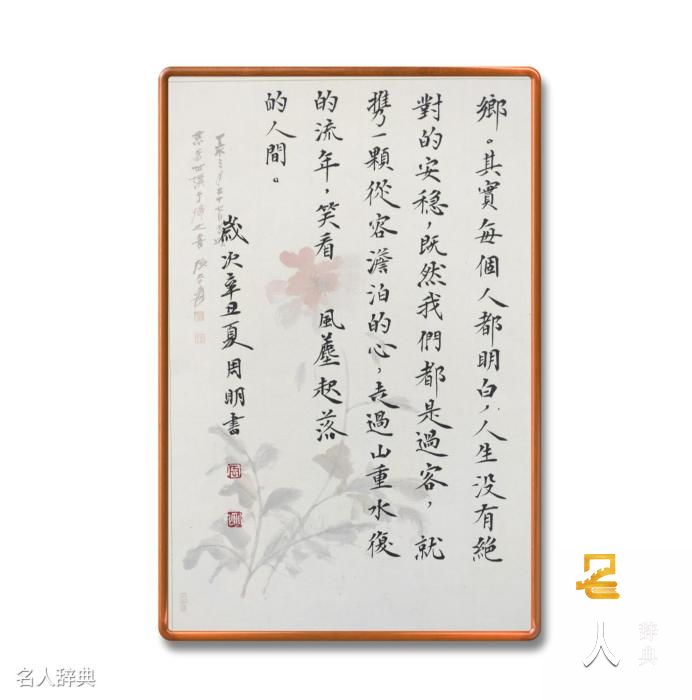 鄉。其實每個人都明白,人生没有絶
對的安穩,既然我們都是過客,就
携一顆從容澹泊的心,走過山重水復
的流年,笑看 風塵起落
的人間。
歲次辛丑夏周明書
名人辞典
人
辞典